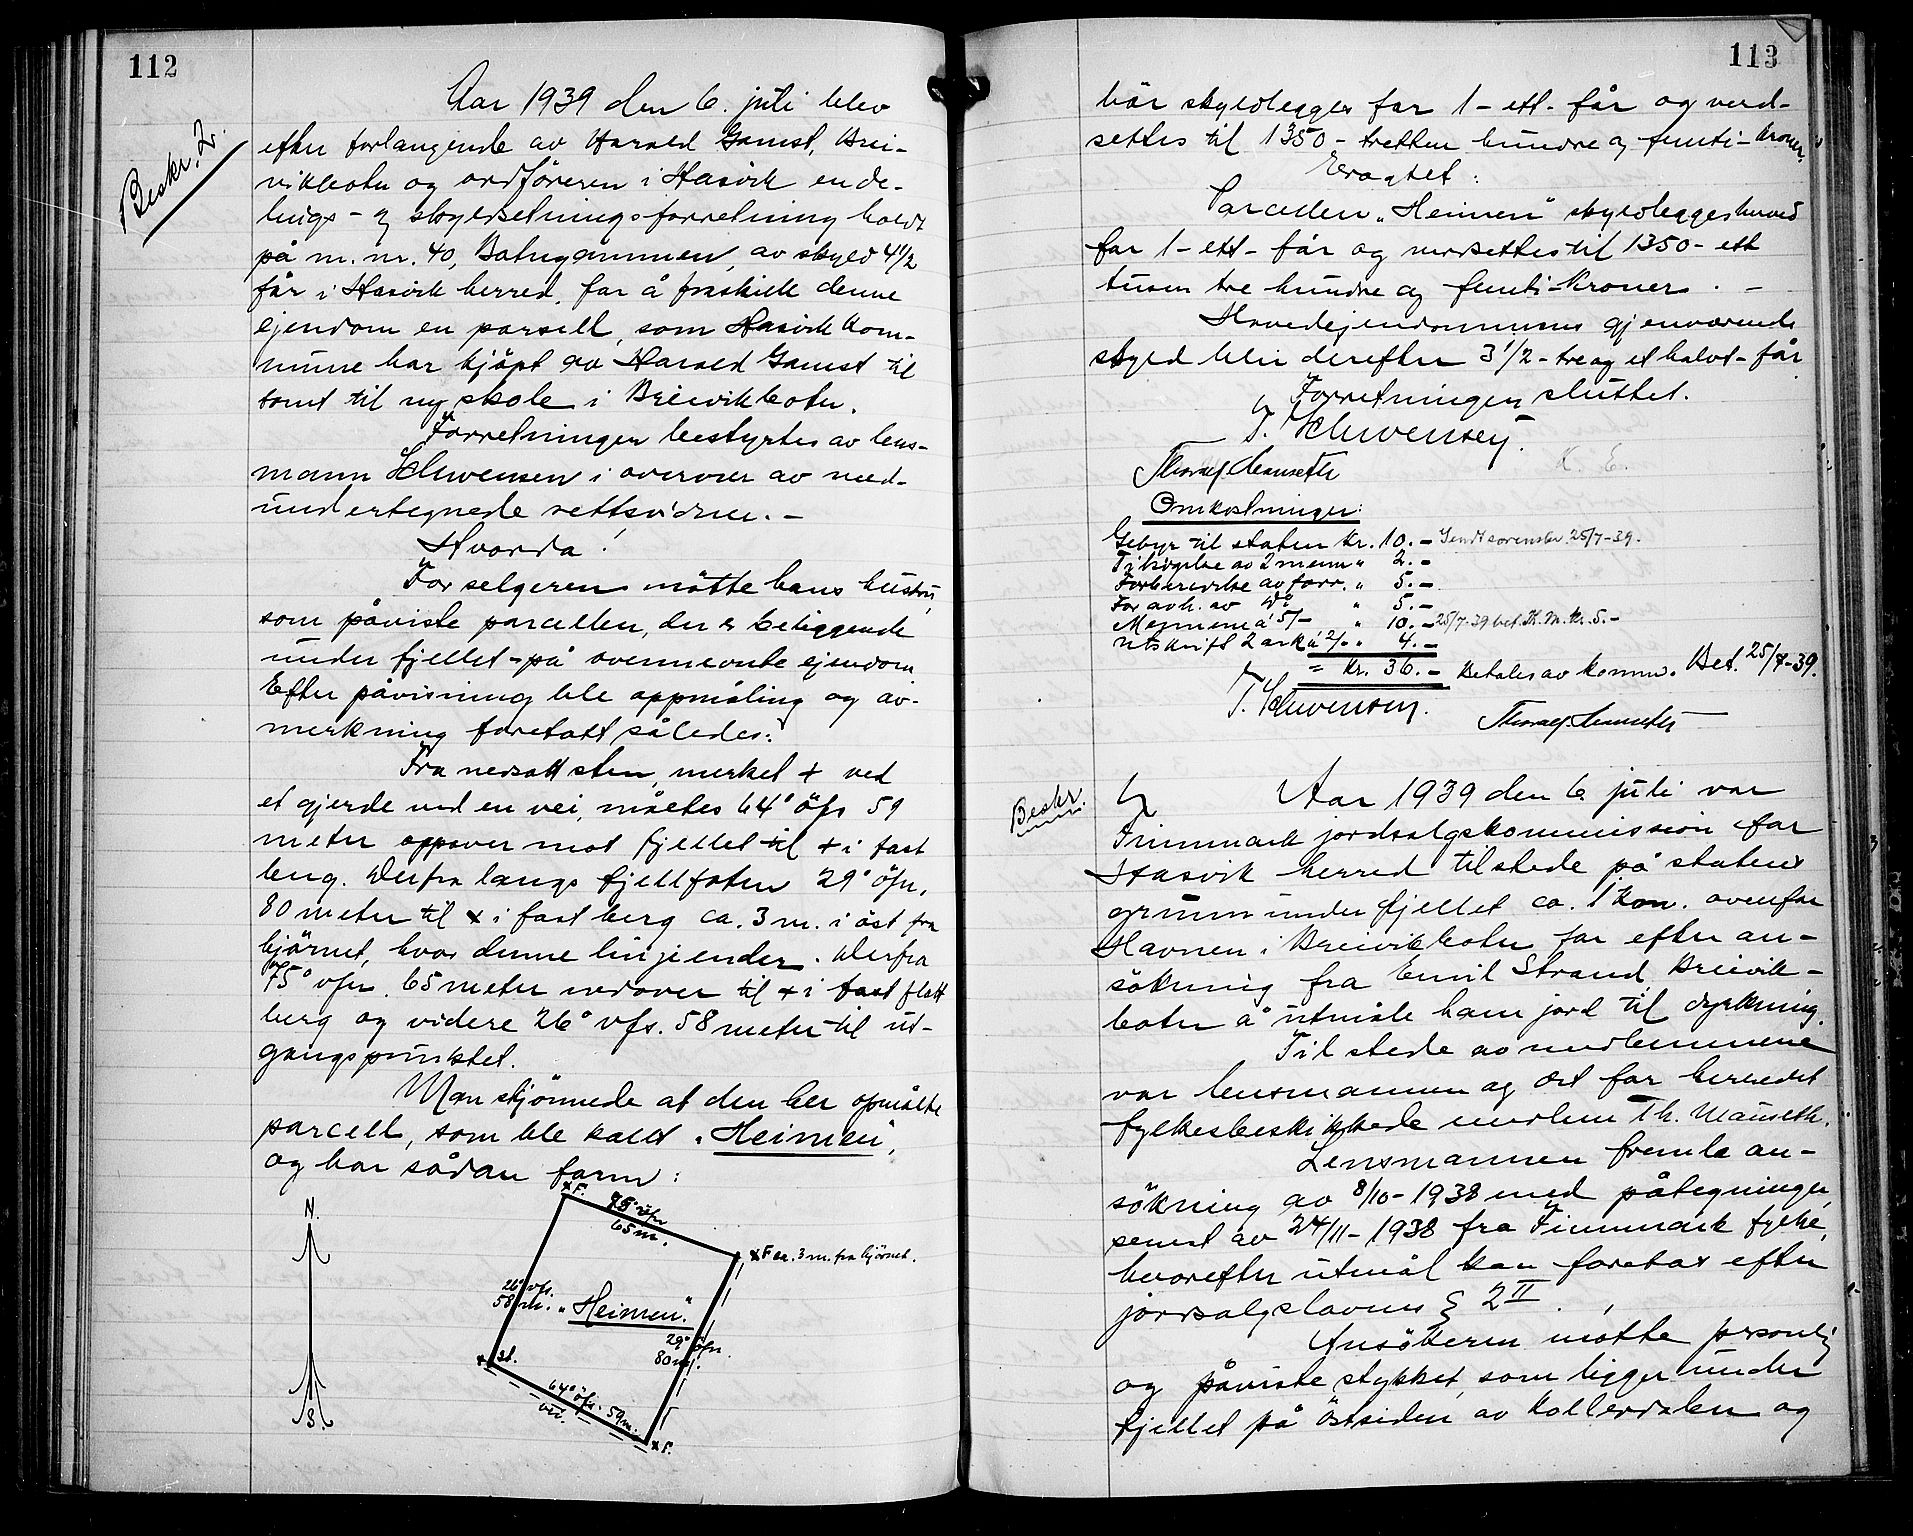 112
Beskr. 2.
Aar 1939 den 6. juli blev
efter forlangende av Harald Gamst, Brei-
vikbotn og ordföreren i Hasvik en de-
lings- og skyldsetningsforretning holdt
på m. nr. 40, Batngammen, av skyld 4 1/2
får i Hasvik herred, for å fraskille denne
ejendom en parsell, som Hasvik kom-
mune har kjöpt av Harald Gamst til
tomt til ny skole i Breivikbotn.
Forretningen bestyrtes av lens-
mann Schwensen i overvær av med-
undertegnede rettsvidne. -
Hvorda!
For selgeren mötte hans hustru,
som påviste parcellen, der er beliggende
under fjellet - på ovennevnte ejendom.
Efter påvisning ble oppmåling og av-
merkning foretatt således:
Fra nedsatt sten, merket + ved
et gjerde ved en vei, måltes 64° öfs 59
meter oppover mot fjellet til + i fast
berg. Derfra langs fjellfoten 29° öfn,
80 meter til x i fast berg ca. 3 m. i öst fra
hjörnet, hvor denne linje ender. Derfra
75° vfn. 65 meter nedover til + i fast flatt
berg og videre 26° vfs. 58 meter til ut-
gangspunktet.
Man skjönnede at den her opmålte
parcell, som ble kaldt "Heimen",
og har sådan form:
N.
S.
x F.
75° vfn
65 m.
x F ca. 3 m. fra hjörnet.
26° vfs.
58 m.
"Heimen."
29° öfn.
80 m.
+ st.
64° öfs. 59 m.
vei.
x F.
113
bör skyldlegges for 1 - ett - får og verd-
settes til 1350 - tretten hundre og femti - kroner.
Eragtet:
Parcellen "Heimen" skyldlegges herved
for 1 - ett - får og verdsettes til 1350 - ett
tusen tre hundre og femti - kroner. -
Hovedejendommens gjenværende
skyld blir derefter 3 1/2 - tre og et halvt - får
Forretningen sluttet.
T. Schwensen.
Thoralf Mauseth
K. E.
Omkostninger:
Gebyr til staten kr. 10. - Sendt sorenskr. 25/7-39.
Tilsigelse av 2 menn " 2. -
Forberedelse av forr. " 5. -
For avh. av do " 5. -
Mennene á 5/- " 10. - 25/7-39 bet. Th. M. kr. 5. -
Utskrift 2 ark á 2/- " 4. -
= kr. 36. - Betales av komm. Bet. 25/7-39.
T. Schwensen.
Thoralf Mauseth
Beskr.
Aar 1939 den 6 juli var
Finnmark jordsalgskommission for
Hasvik herred tilstede på statens
grunn under fjellet ca. 1 km. ovenfor
Havnen i Breivikbotn for efter an-
sökning fra Emil Strand, Breivik-
botn å utmåle ham jord til dyrkning.
Til stede av medlemmene
var lensmannen og det for herredet
fylkesbeskikkede medlem Th. Mauseth.
Lensmannen fremla an-
sökning av 8/10-1938 med påtegninger,
senest av 24/11-1938 fra Finnmark fylke,
hvorefter utmål kan foretas efter
jordsalgslovens § 2 II.
Ansökeren mötte personlig
og påviste stykket, som ligger under
fjellet på östsiden av Kollerdalen og